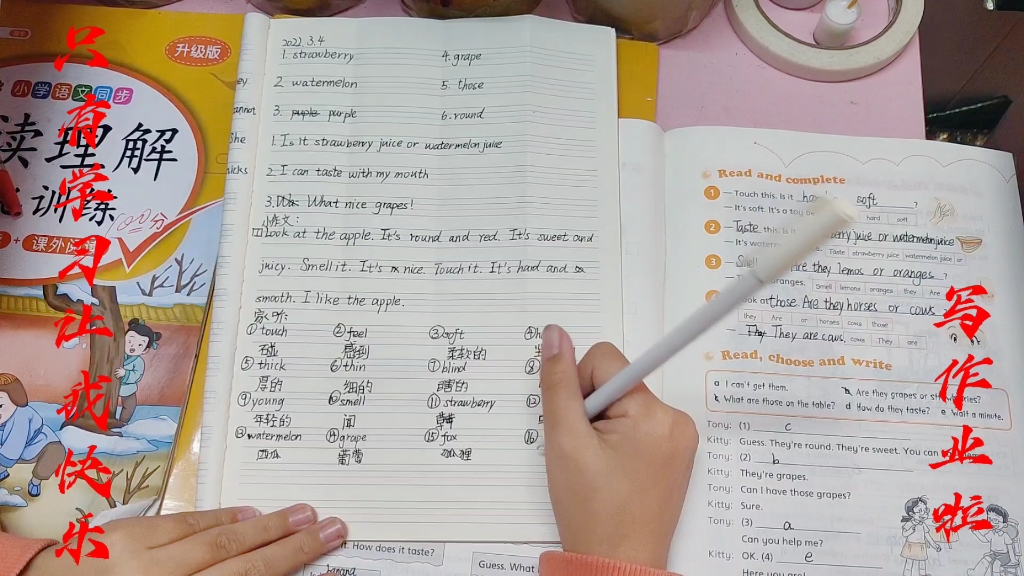 只有学习让我快乐
写作业啦
升级版
小学语文同步
读理解
训练
100分
课外阅读
2022.3.4
1. strawberry 4. grape
2. watermelon 5. those
3. purple purple 6. round
1. Is it strawberry juice or watermelon juice
2. I can taste with my mouth
3. What nice grapes!
小作文:
Look at the apple. It's round and red. It's sweet and
juicy. Smell it. It's nice. Touch it. It's hard and
smooth. I like the apple.
①touch ②feel ③soft
感到 柔软的
⑤thick ⑥thin ⑦blind ⑧
厚的 细的 瞎的
⑨young ⑩smell ⑪strawberry ⑫
年轻的 闻
⑬watermelon ⑭grape ⑮fox ⑯
西瓜 葡萄 狐狸
Read and complete
1 – Touch this. Is it soft ?
hard soft
– It's soft. It's a toy
2 Taste this. Is it juice or watermelon juice
– It's Taste strawberry juice watermelon juice or
3 Smell are they lemos or oranges ?
oranges. Smell lemons oranges they Are
at those Are they horses or cows ?
they Are or horses cows those
– They are cows. cows They are
Read, choose and write
a I can't get them. Are they grapes or
What are those on the table? d How do they taste? e Wait a minute.
Tony: (1) c
Kitty: Guess. They're round. They're sweet. You can
Tony: (2) b
Kitty: They're grapes.
Tony: Can I have those grapes?
Kitty: Sure.
Tony: (3) a
Can you help me?
Kitty: OK. (4) e
Here you are!
How does it taste?
Guess. What
banana